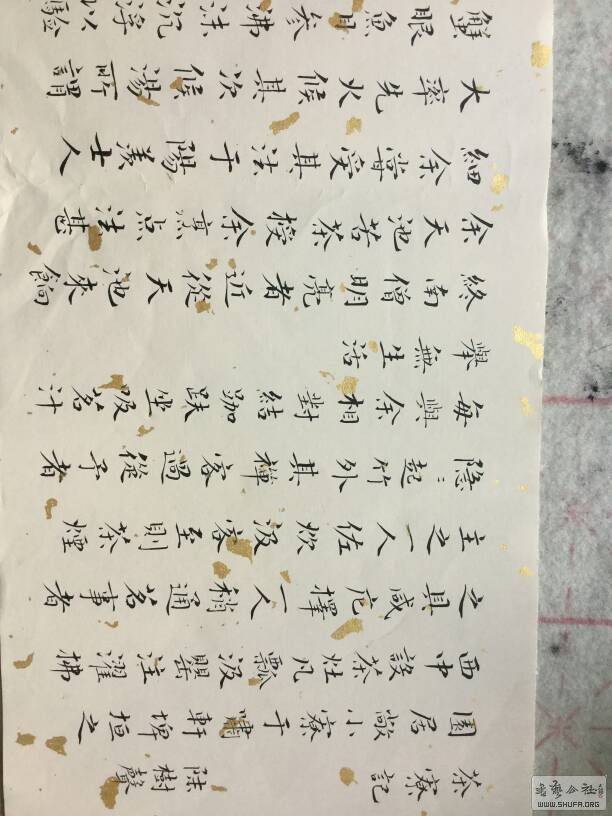 茶寮記 陸樹聲
園居敞小寮于嘯軒埤垣之
西中設茶灶凡瓢汲罌注濯拂
之具咸庀擇一人稍通茗事者
主之一人佐炊汲客至則茶煙
隱:起竹外其禪客過從予者
每與余相對結跏趺坐啜茗汁
舉無生话
終南僧明亮者近從天池來餉
余天池苦茶授余烹点法甚
細余嘗受其法于陽羨士人
大率先火候其次候湯所謂
蟹眼魚目参沸沫沉浮以驗
书艺公社
WWW.SHUFA.ORG